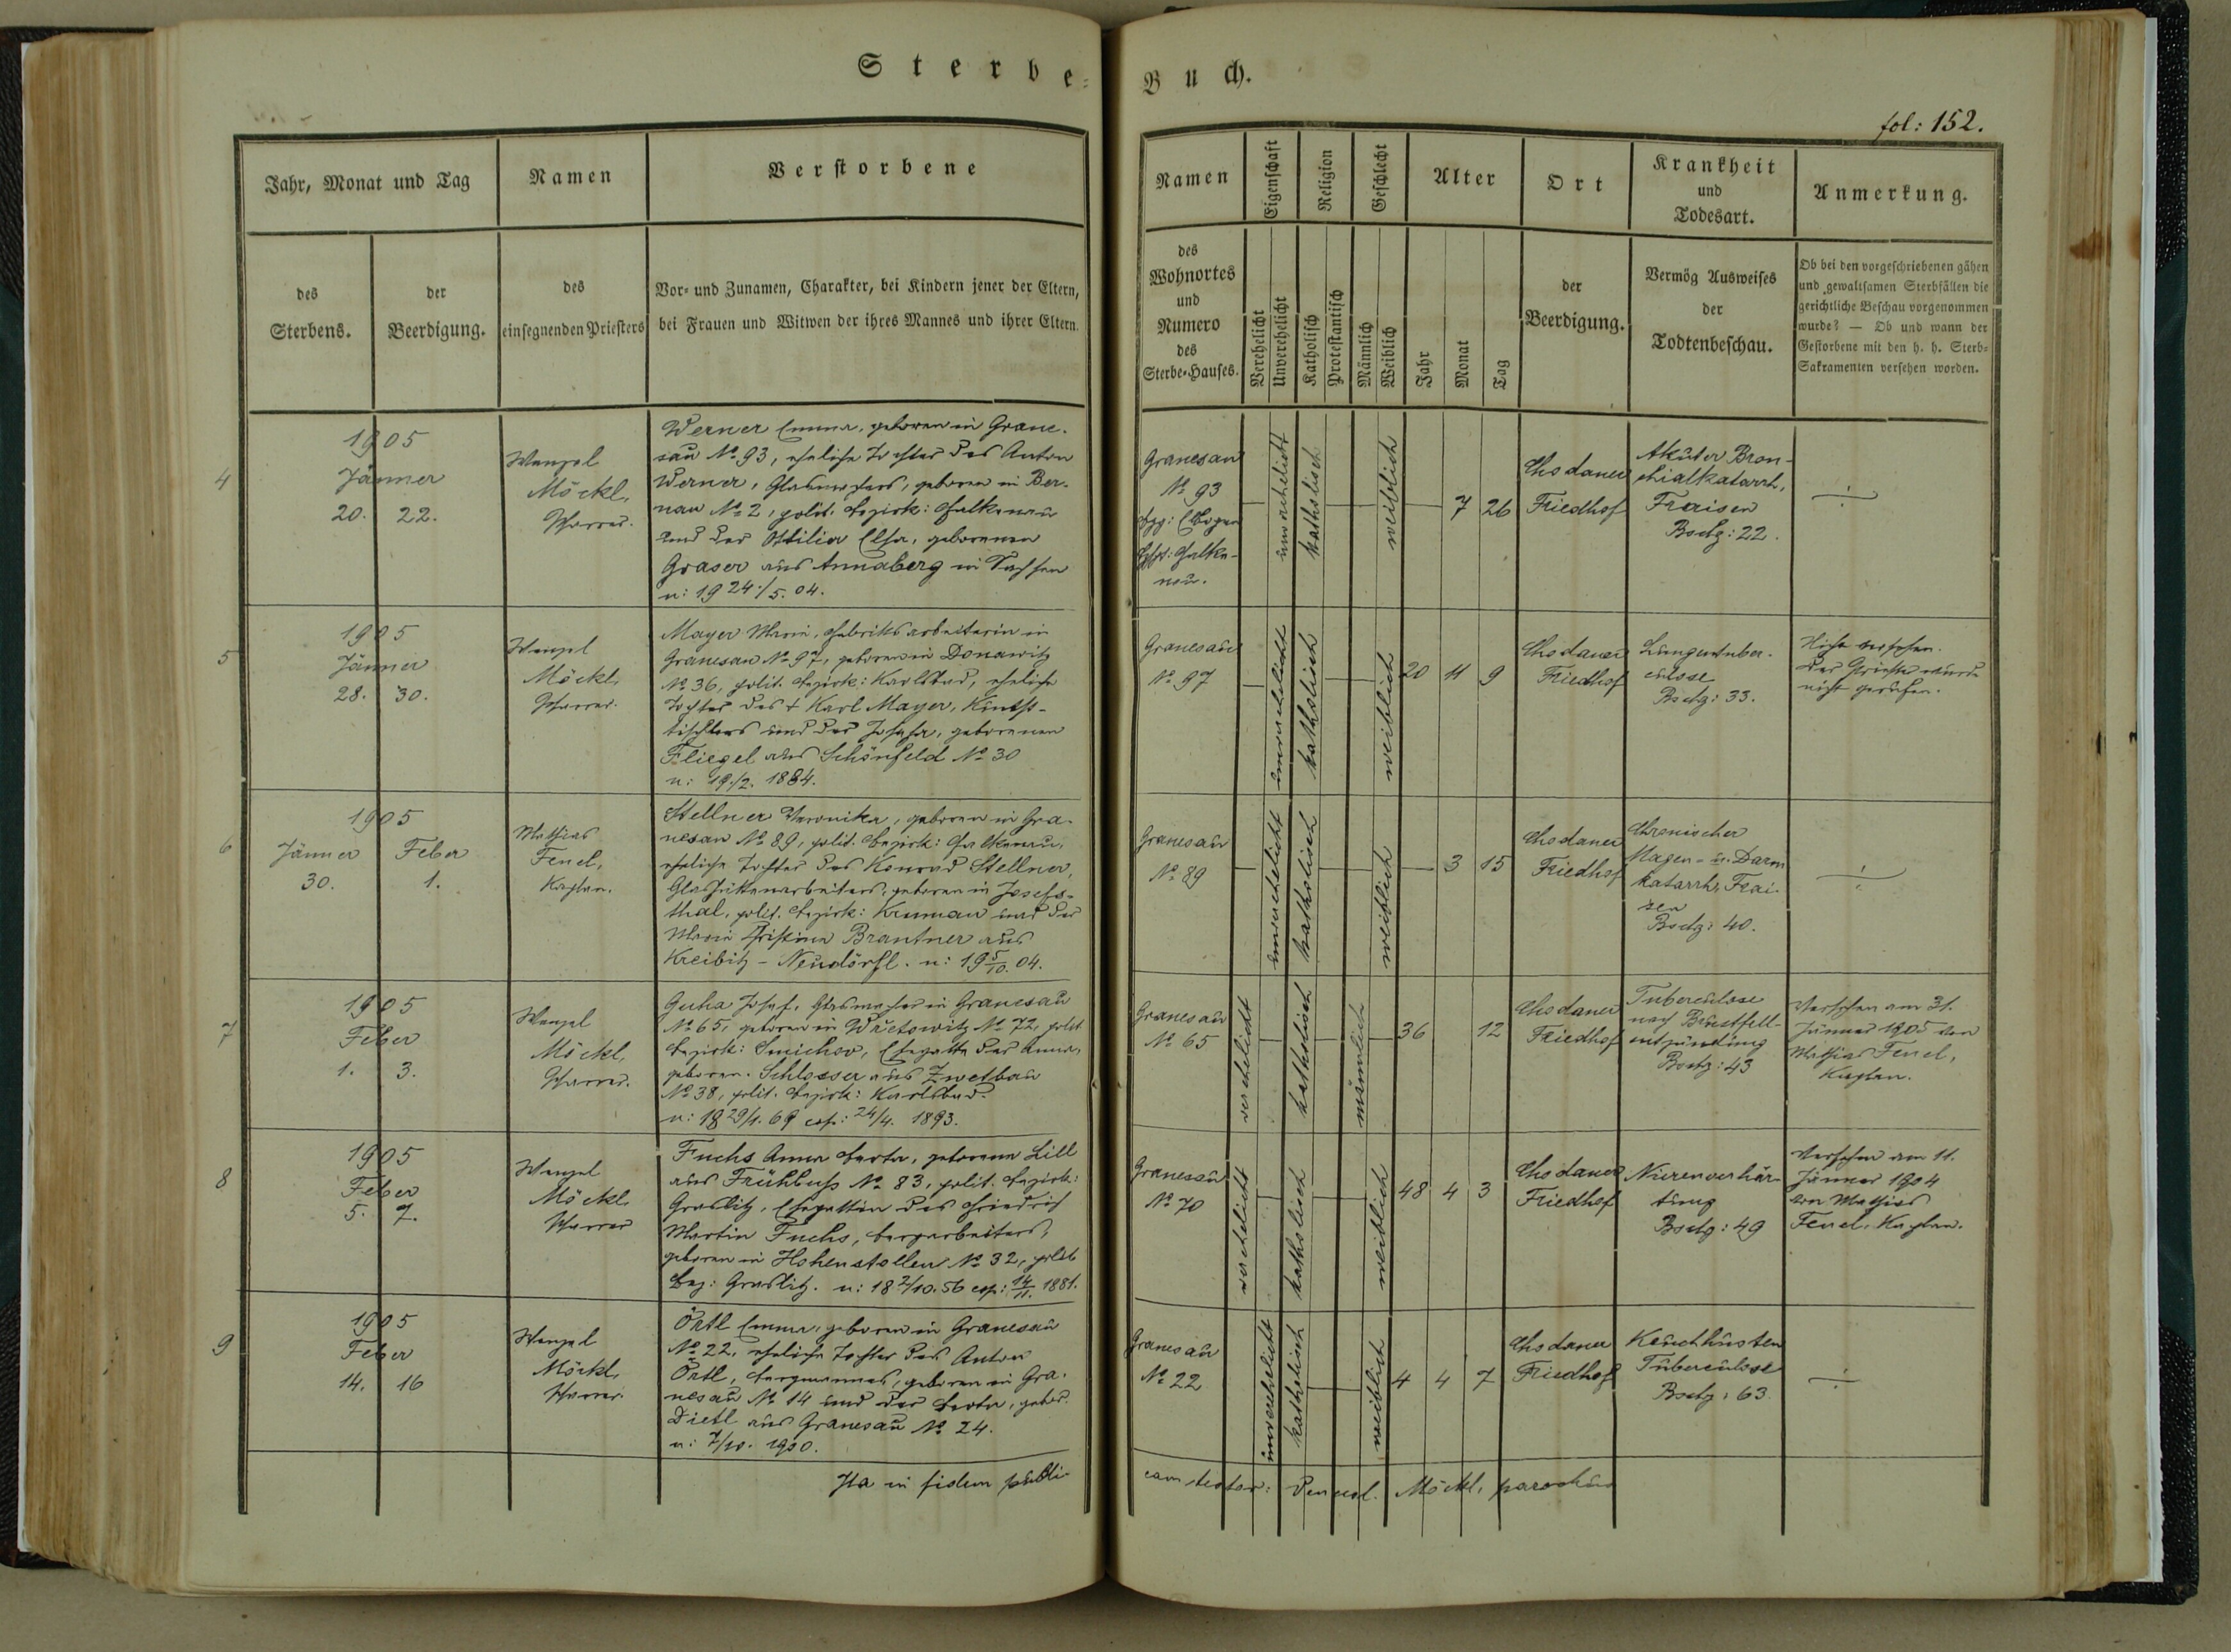 Sterbe=
Buch.
fol: 152.
Jahr, Monat und Tag
Namen
Verstorbene
des
Sterbens.
der
Beerdigung.
des
einsegnenden Priesters
Vor- und Zunamen, Charakter, bei Kindern jener der Eltern,
bei Frauen und Witwen der ihres Mannes und ihrer Eltern.
Namen
Eigenschaft
Religion
Geschlecht
Alter
Ort
Krankheit
und
Todesart.
Anmerkung.
des
Wohnortes
und
Numero
des
Sterbe-Hauses.
Verehelicht
Unverehelicht
Katholisch
Protestantisch
Männlich
Weiblich
Jahr
Monat
Tag
der
Beerdigung.
Vermög Ausweises
der
Todtenbeschau.
Ob bei den vorgeschriebenen gähen
und gewaltsamen Sterbfällen die
gerichtliche Beschau vorgenommen
wurde? — Ob und wann der
Gestorbene mit den h. h. Sterb=
Sakramenten versehen worden.
4
1905
Jänner
20. 22.
Wenzel
Möckl,
Pfarrer.
Werner Emma, geboren in Grane-
sau № 93, eheliche Tochter des Anton
Werner, Glasmachers, geboren in Ber-
nau № 2, polit. Bezirk: Falkenau
und der Ottilia Elsa, geborenen
Graser aus Annaberg in Sachsen
n: 19 24./5. 04.
Granesau
№ 93
Bzg: Elbogen
Falke-
nau.
unverehelicht
katholisch
weiblich
7
26
Chodauer
Friedhof
Akuter Bron-
chialkatarrh,
Fraisen
Bschg: 22.
5
1905
Jänner
28. 30.
Wenzel
Möckl,
Pfarrer.
Mayer Maria, Fabriksarbeiterin in
Granesau № 97, geboren in Donawitz
№ 36, polit. Bezirk: Karlsbad, eheliche
Tochter des † Karl Mayer, Kunst-
tischlers und der Josefa, geborenen
Fliegel aus Schönfeld № 30
n: 19./2. 1884.
Granesau
№ 97
unverehelicht
katholisch
weiblich
20
11
9
Chodauer
Friedhof
Lungentuber-
culose
Bschg: 33.
Nicht versehen.
Der Priester wurde
nicht gerufen.
6
1905
Jänner Feber
30. 1.
Mathias
Fenel,
Kaplan.
Stellner Veronika, geboren in Gra-
nesau № 89, polit. Bezirk: Falkenau,
eheliche Tochter des Konrad Stellner,
Glashüttenarbeiters, geboren in Josefs-
thal, polit. Bezirk: Krumau und der
Maria Christina Brantner aus
Kreibitz - Neudörfl. n: 19 5/10. 04.
Granesau
№ 89
unverehelicht
katholisch
weiblich
3
15
Chodauer
Friedhof
Chronischer
Magen- u. Darm
katarrh, Frai-
sen
Bschg: 40.
7
1905
Feber
1. 3.
Wenzel
Möckl,
Pfarrer.
Guha Josef, Glasmacher in Granesau
№ 65, geboren in № 72, polit.
Bezirk: Smichov, Ehegatte der Anna,
geboren. Schlosser aus Zwetbau
№ 38, polit. Bezirk: Karlsbad.
n: 18 29/1. 69 cop: 24/4. 1893.
Granesau
№ 65
verehelicht
katholisch
männlich
36
12
Chodauer
Friedhof
Tuberculose
nach Brustfell-
entzündung
Bschg: 43
Versehen am 31.
Jänner 1905 von
Mathias Fenel,
Kaplan.
8
1905
Feber
5. 7.
Wenzel
Möckl,
Pfarrer
Fuchs Anna Berta, geborene Lill
aus Frühbuß № 83, polit. Bezirk:
Graslitz, Ehegattin des Friedrich
Martin Fuchs, Bergarbeiters,
geboren in Hohenstollen № 32, polit.
Bez: Graslitz. n: 18 2/10. 56 cop: 14/11. 1881.
Granesau
№ 70
verehelicht
katholisch
weiblich
48
4
3
Chodauer
Friedhof
Nierenverhär-
tung
Bschg: 49
Versehen am 11.
Jänner 1904
von Mathias
Fenel, Kaplan.
9
1905
Feber
14. 16
Wenzel
Möckl,
Pfarrer.
Örtl Emma, geboren in Granesau
№ 22, eheliche Tochter des Anton
Örtl, Bergmannes, geboren in Gra-
nesau № 14 und der Berta, gebor.
Dietl aus Granesau № 24.
n: 7/10. 1900.
Granesau
№ 22
unverehelicht
katholisch
weiblich
4
4
7
Chodauer
Friedhof
Keuchhusten
Tuberculose
Bschg: 63.
Ita in fidem publi-
cam testor: Vencesl. Möckl, parochus